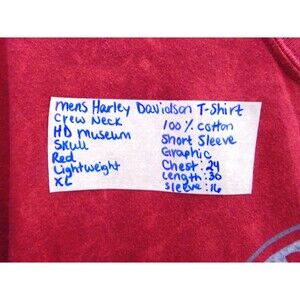 mens Harley Davidson T-Shirt
Crew Neck
HD Museum
Skull
Red
Lightweight
XL
100% cotton
Short Sleeve
Graphic
Chest: 24
Length: 30
Sleeve: 16